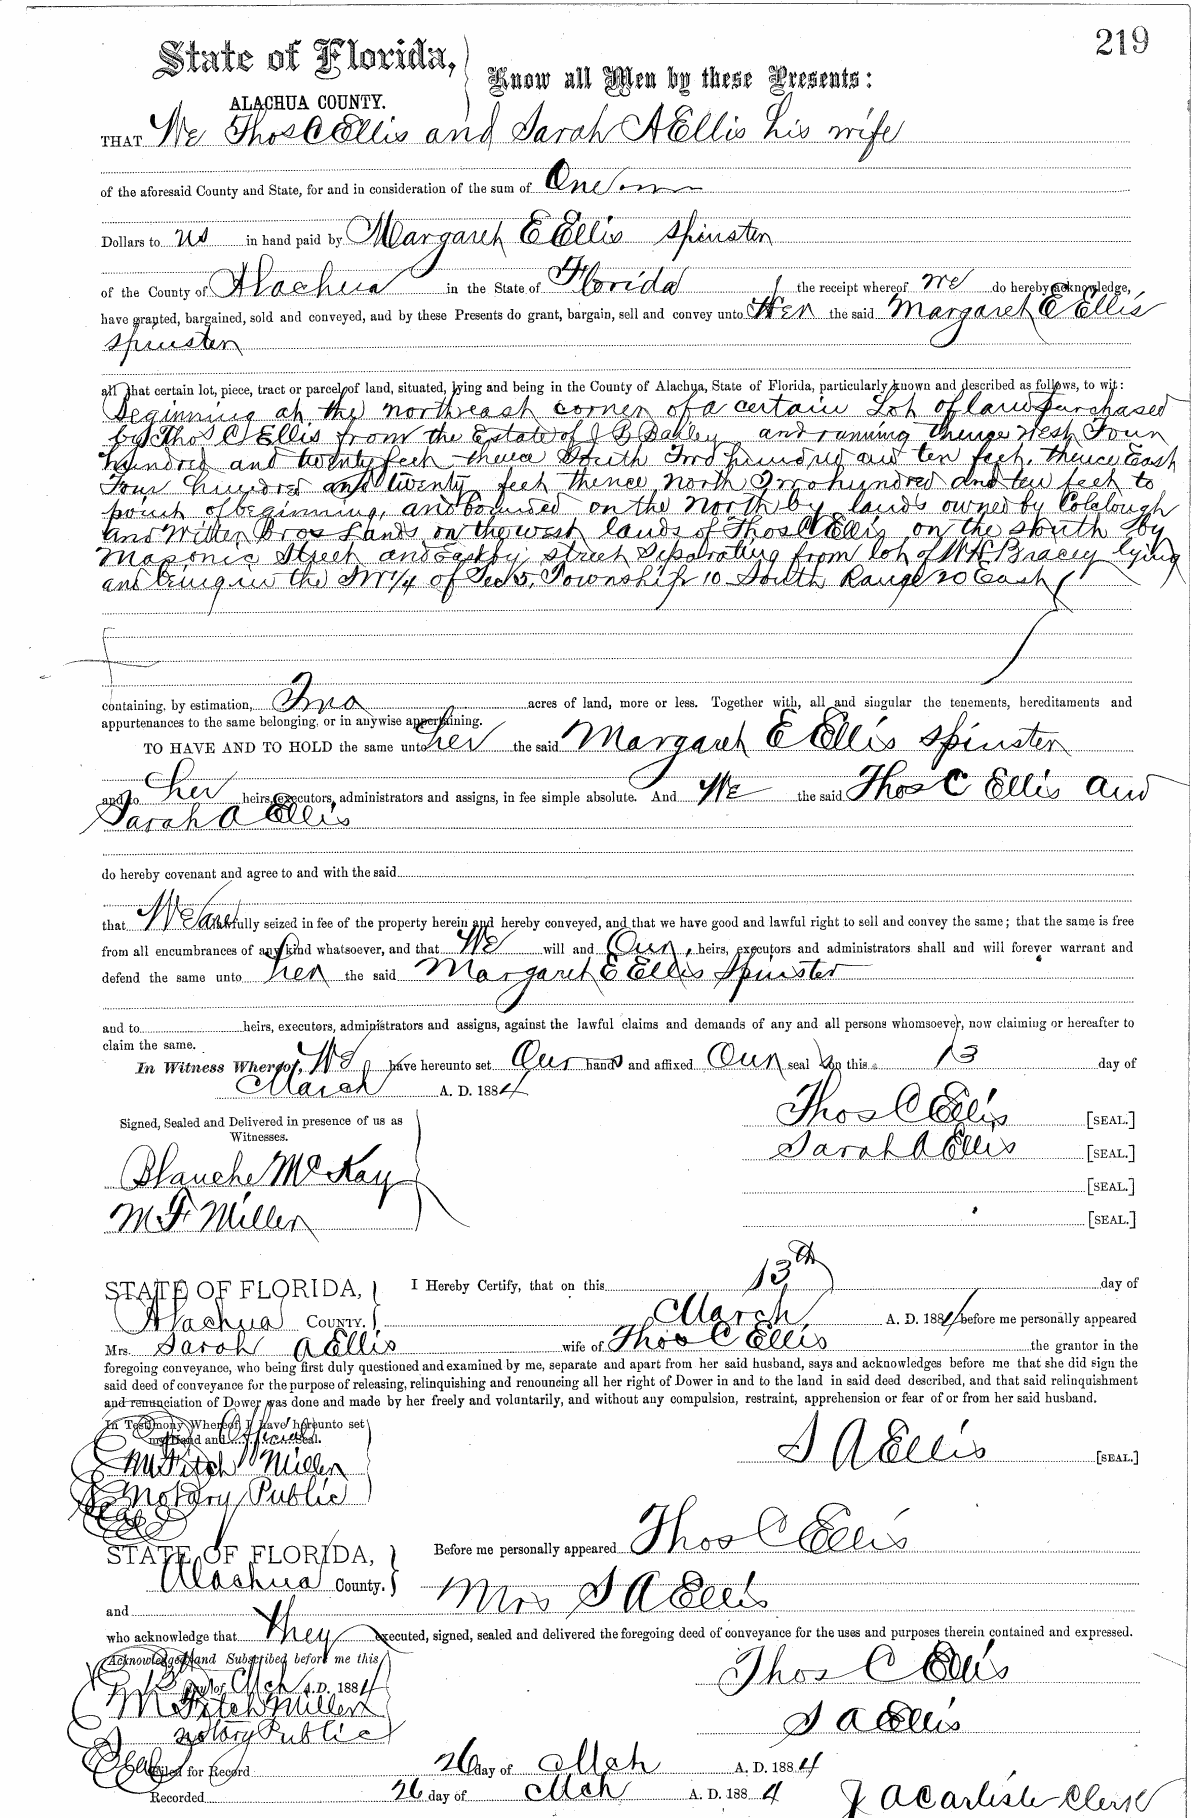 219
State of Florida,
Know all Men by these Presents:
ALACHUA COUNTY.
THAT We Thos C Ellis and Sarah A Ellis his wife
of the aforesaid County and State, for and in consideration of the sum of One
Dollars to us in hand paid by Margaret E Ellis spinster
of the County of Alachua in the State of Florida the receipt whereof we do hereby acknowledge,
have granted, bargained, sold and conveyed, and by these Presents do grant, bargain, sell and convey unto Her the said Margaret E Ellis
spinster
all that certain lot, piece, tract or parcel of land, situated, lying and being in the County of Alachua, State of Florida, particularly known and described as follows, to wit:
Beginning at the northeast corner of a certain Lot of land purchased
by Thos C Ellis from the Estate of J B Dailey and running thence West Four
hundred and twenty feet thence South Two hundred and ten feet, thence East
Four hundred and twenty feet thence north Two hundred and ten feet to
point of beginning, and bounded on the North by lands owned by Colclough
and Witten Bros Lands on the west lands of Thos C Ellis on the south by
Masonic Street and East by street separating from lot of W K Bracey lying
and being in the SW 1/4 of Sec 5, Township 10 South Range 20 East
containing, by estimation, Two acres of land, more or less. Together with, all and singular the tenements, hereditaments and
appurtenances to the same belonging, or in anywise appertaining.
TO HAVE AND TO HOLD the same unto her the said Margaret E Ellis spinster
and to her heirs, executors, administrators and assigns, in fee simple absolute. And We the said Thos C Ellis and
Sarah A Ellis
do hereby covenant and agree to and with the said
that We are lawfully seized in fee of the property herein and hereby conveyed, and that we have good and lawful right to sell and convey the same; that the same is free
from all encumbrances of any kind whatsoever, and that We will and Our heirs, executors and administrators shall and will forever warrant and
defend the same unto her the said Margaret E Ellis Spinster
and to heirs, executors, administrators and assigns, against the lawful claims and demands of any and all persons whomsoever, now claiming or hereafter to
claim the same.
In Witness Whereof, We have hereunto set Our hands and affixed Our seal on this 13 day of
March A. D. 1884
Signed, Sealed and Delivered in presence of us as
Witnesses.
Thos C Ellis [SEAL.]
Sarah A Ellis [SEAL.]
Blanche McKay
[SEAL.]
M F Miller
[SEAL.]
STATE OF FLORIDA,
I Hereby Certify, that on this 13th day of
Alachua COUNTY.
March A. D. 1884 before me personally appeared
Mrs. Sarah A Ellis wife of Thos C Ellis the grantor in the
foregoing conveyance, who being first duly questioned and examined by me, separate and apart from her said husband, says and acknowledges before me that she did sign the
said deed of conveyance for the purpose of releasing, relinquishing and renouncing all her right of Dower in and to the land in said deed described, and that said relinquishment
and renunciation of Dower was done and made by her freely and voluntarily, and without any compulsion, restraint, apprehension or fear of or from her said husband.
In Testimony Whereof I have hereunto set
my hand and Official seal.
S A Ellis [SEAL.]
M Fitch Miller
Notary Public
Seal
STATE OF FLORIDA,
Before me personally appeared Thos C Ellis
Alachua County.
Mrs S A Ellis
and
who acknowledge that they executed, signed, sealed and delivered the foregoing deed of conveyance for the uses and purposes therein contained and expressed.
Acknowledged and Subscribed before me this
13 day of Mch A.D. 1884
Thos C Ellis
M Fitch Miller
Notary Public
S A Ellis
Seal
Filed for Record 26 day of Mch A. D. 1884
Recorded 26 day of Mch A. D. 1884
J A Carlisle Clerk